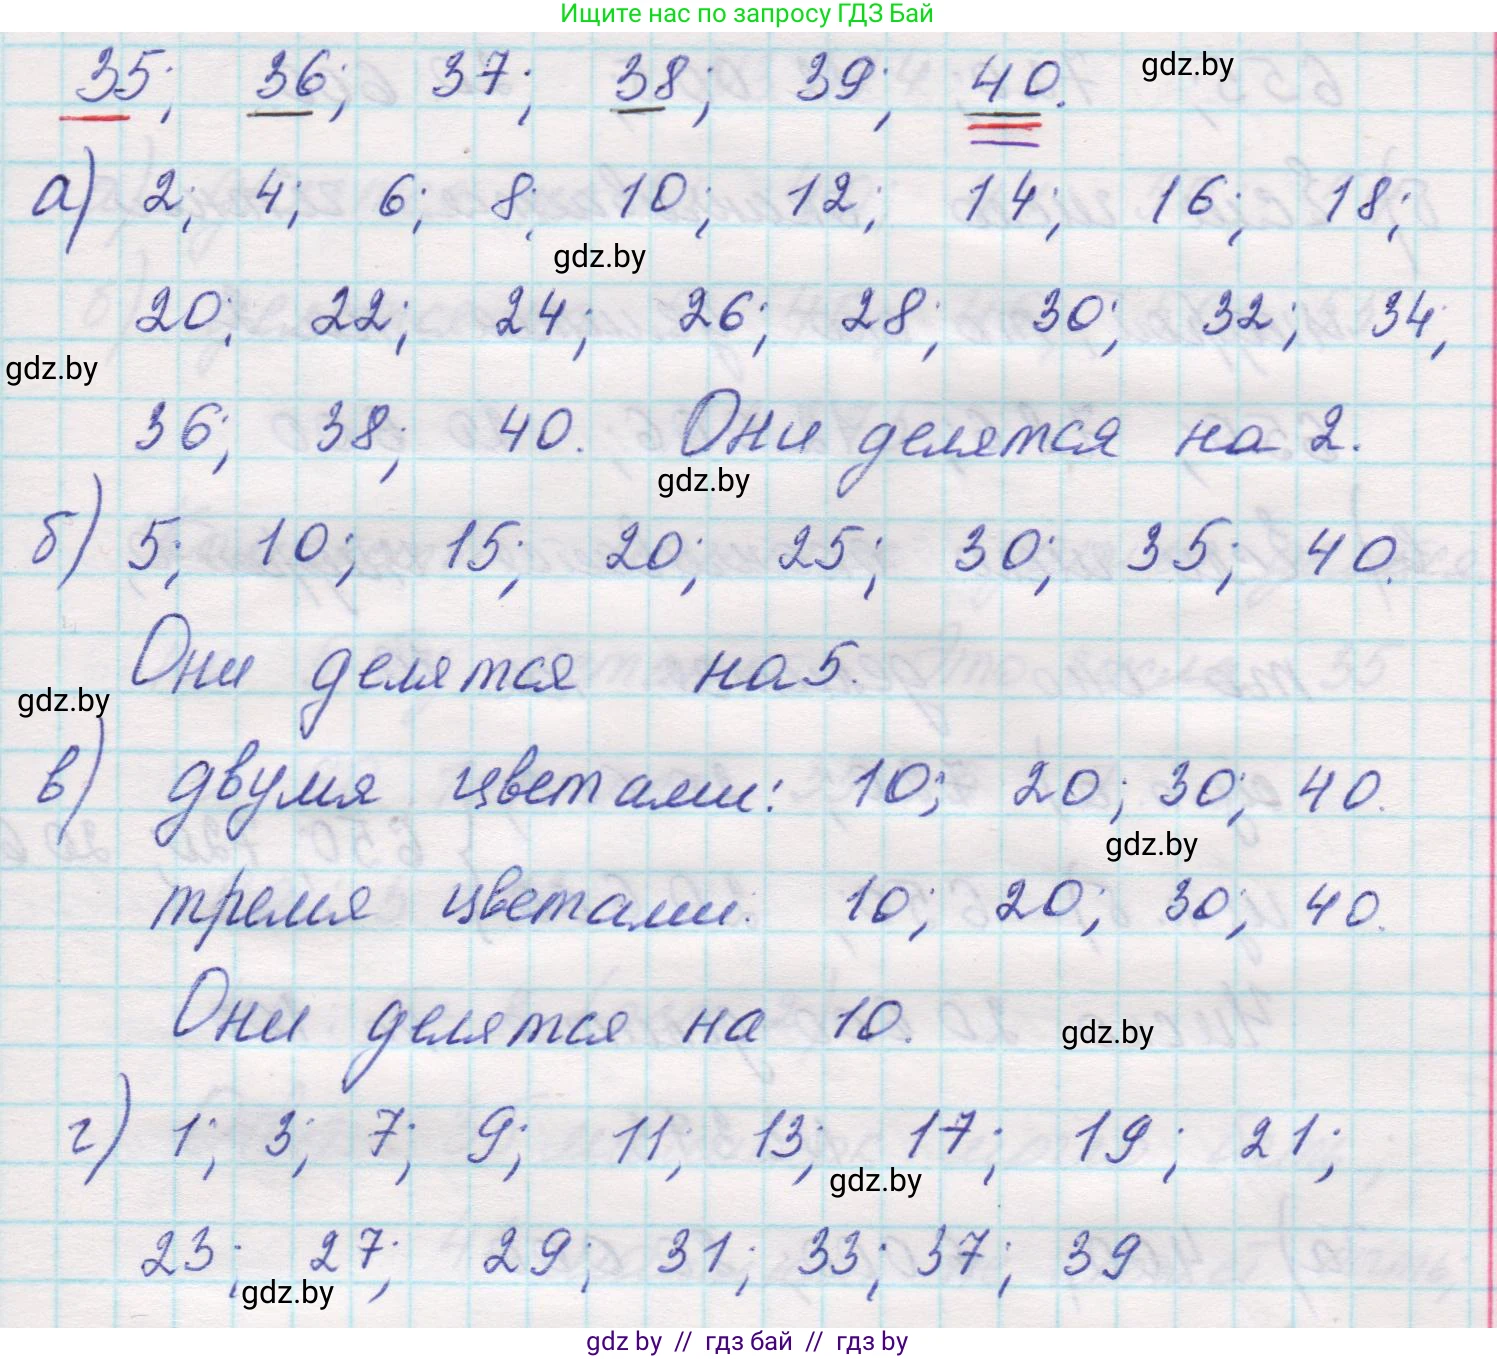 Ищите нас по запросу ГДЗ Бай
35; 36; 37; 38; 39; 40.
gdz.by
а) 2; 4; 6; 8; 10; 12; 14; 16; 18;
gdz.by
20; 22; 24; 26; 28; 30; 32; 34;
gdz.by
36; 38; 40. Они делятся на 2.
gdz.by
б) 5; 10; 15; 20; 25; 30; 35; 40.
Они делятся на 5.
gdz.by
в) двумя цветами: 10; 20; 30; 40.
gdz.by
тремя цветами: 10; 20; 30; 40.
Они делятся на 10.
gdz.by
г) 1; 3; 7; 9; 11; 13; 17; 19; 21;
gdz.by
23; 27; 29; 31; 33; 37; 39
gdz.by
gdz by // гдз бай // гдз by